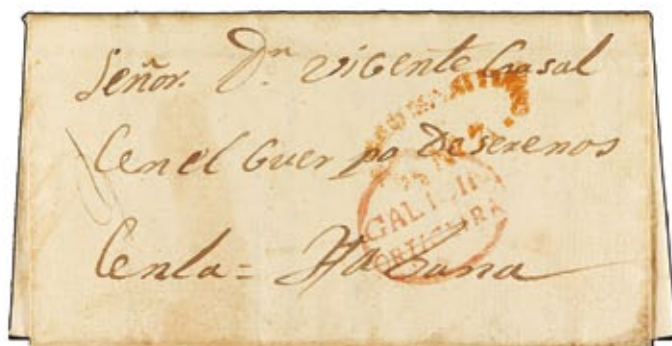 Señor. Dn Vicente Casal
Cenel Cuerpo De serenos
Cenla = Habana
GALICIA